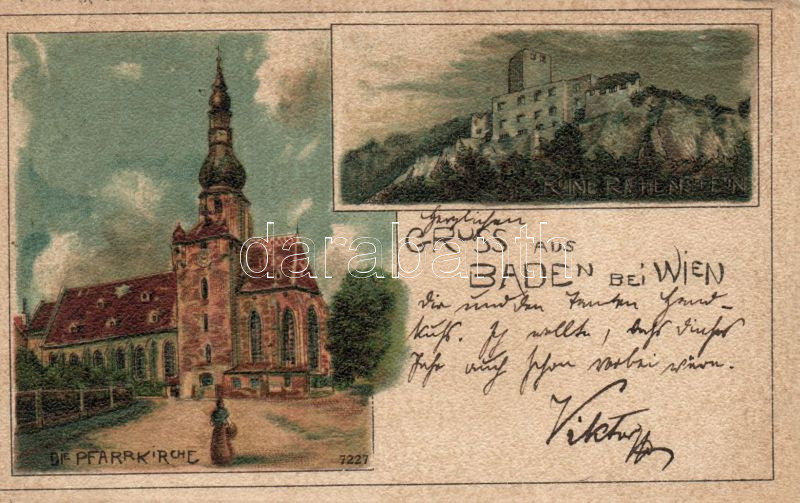 RUINE RAUHENSTEIN
Herzlichen
GRUSS AUS
BADEN BEI WIEN
dir und den Tanten Hand-
kuß. Ich wollte, daß dieses
Jahr auch schon vorbei wäre.
Viktor
DIE PFARRKIRCHE
7227
darabanth.com